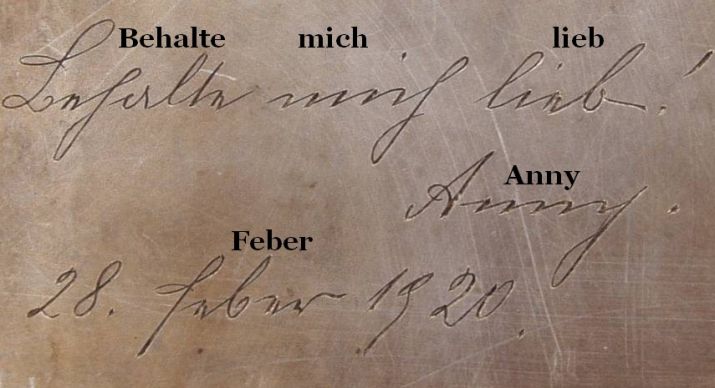 Behalte mich lieb
Behalte mich lieb!
Anny
Anny.
Feber
28. Feber 1920.